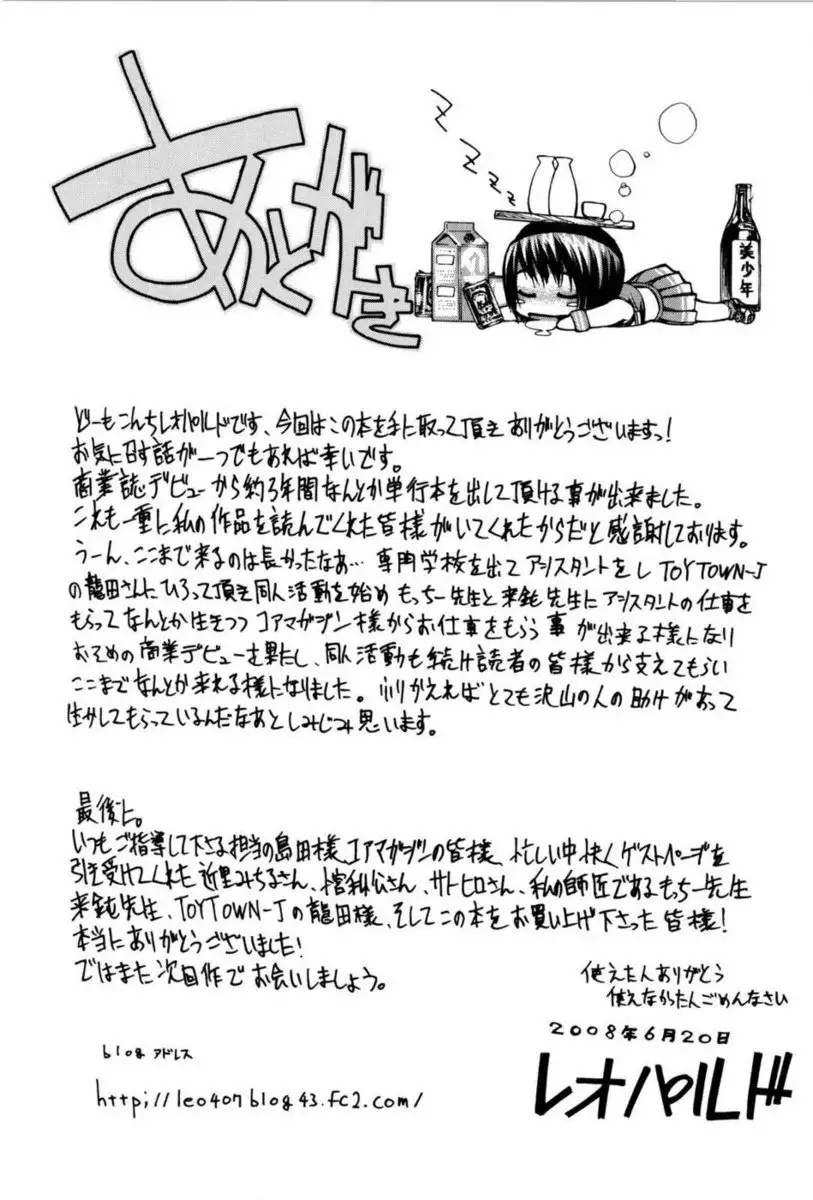 あとがき
zzzz
美少年
どーもこんちレオパルドです、今回はこの本を手に取って頂きありがとうございますっ!
お気に召す話が一つでもあれば幸いです。
商業誌デビューから約3年間なんとか単行本を出して頂ける事が出来ました。
これも一重に私の作品を読んでくれた皆様がいてくれたからだと感謝しております。
うーん、ここまで来るのは長かったなあ… 専門学校を出てアシスタントをし TOYTOWN-J
の龍田さんにひろって頂き同人活動を始め もっちー先生と来鈍先生にアシスタントの仕事を
もらってなんとか生きつつ コアマガジン様からお仕事をもらう事が出来る様になり
おそめの商業デビューを果たし、同人活動も続け読者の皆様から支えてもらい
ここまでなんとか来れる様になりました。ふりかえればとても沢山の人の助けがあって
生かしてもらっているんだなあとしみじみ思います。
最後に。
いつもご指導して下さる担当の島田様、コアマガジンの皆様、忙しい中快くゲストページを
引き受けてくれた近里みちるさん、さん、サトヒロさん、私の師匠であるもっちー先生
来鈍先生、TOYTOWN-Jの龍田様、そしてこの本をお買い上げ下さった皆様!
本当にありがとうございました!
ではまた次回作でお会いしましょう。
使えた人ありがとう
使えなかった人ごめんなさい
2008年6月20日
レオパルド
blog アドレス
http://leo407blog43.fc2.com/